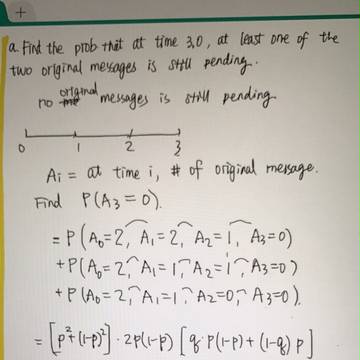 a. Find the prob that at time 3.0, at least one of the
two original messages is still pending.
no original messages is still pending
0 1 2 3
Ai = at time i, # of original message.
Find P(A3=0).
= P(A0=2, A1=2, A2=1, A3=0)
+P(A0=2, A1=1, A2=1, A3=0)
+P(A0=2, A1=1, A2=0, A3=0).
= [p²+(1-p)²]·2p(1-p) [q·p(1-p)+(1-q)p]